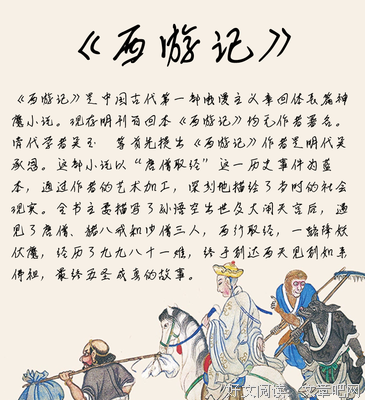 《西游记》
《西游记》是中国古代第一部浪漫主义章回体长篇神
魔小说。现存明刊百回本《西游记》均无作者署名。
清代学者吴玉 等首先提出《西游记》作者是明代吴
承恩。这部小说以“唐僧取经”这一历史事件为蓝
本，通过作者的艺术加工，深刻地描绘了当时的社会
现实。全书主要描写了孙悟空出世及大闹天宫后，遇
见了唐僧、猪八戒和沙僧三人，西行取经，一路降妖
伏魔，经历了九九八十一难，终于到达西天见到如来
佛祖，最终五圣成真的故事。
好文阅读：文章吧网